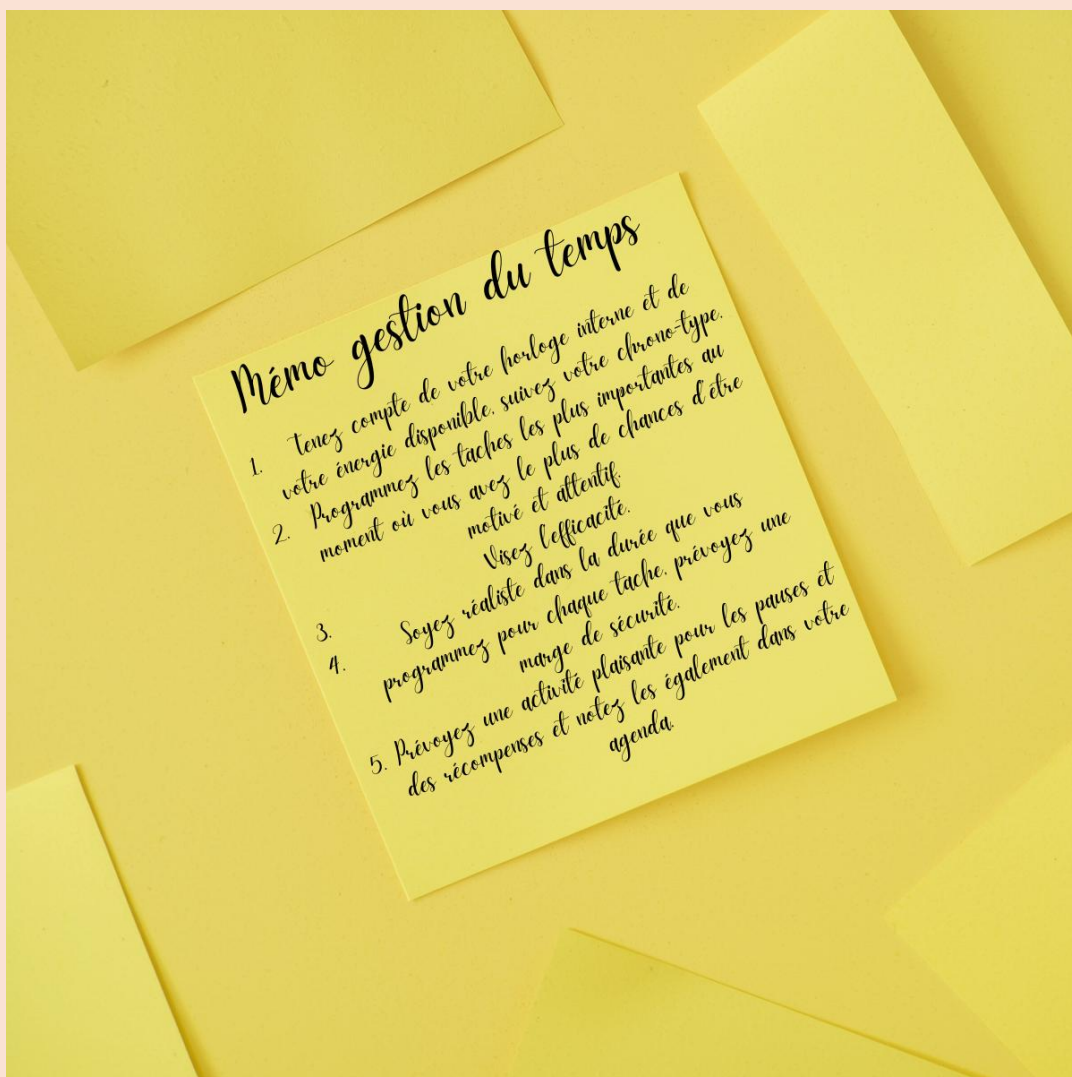 Mémo gestion du temps
1. Tenez compte de votre horloge interne et de
votre énergie disponible, suivez votre chrono-type.
2. Programmez les tâches les plus importantes au
moment où vous avez le plus de chances d'être
motivé et attentif.
3. Visez l'efficacité.
4. Soyez réaliste dans la durée que vous
programmez pour chaque tâche, prévoyez une
marge de sécurité.
5. Prévoyez une activité plaisante pour les pauses et
des récompenses et notez les également dans votre
agenda.